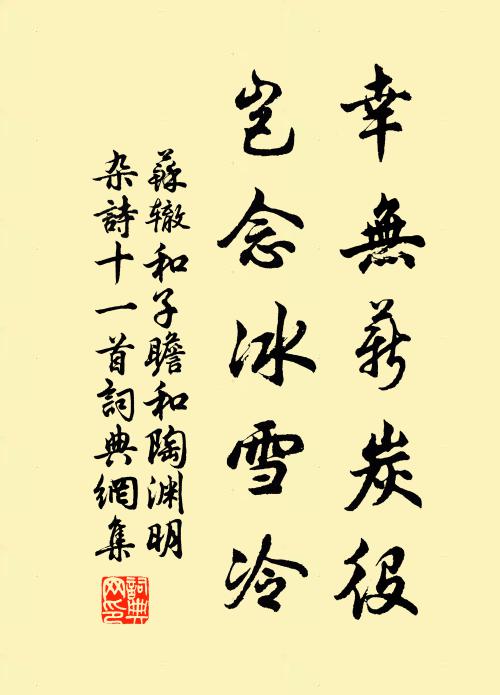 幸無薪炭役
岂念冰雪冷
蘇辙和子瞻和陶渊明
杂詩十一首詞典網集
詞典
网印